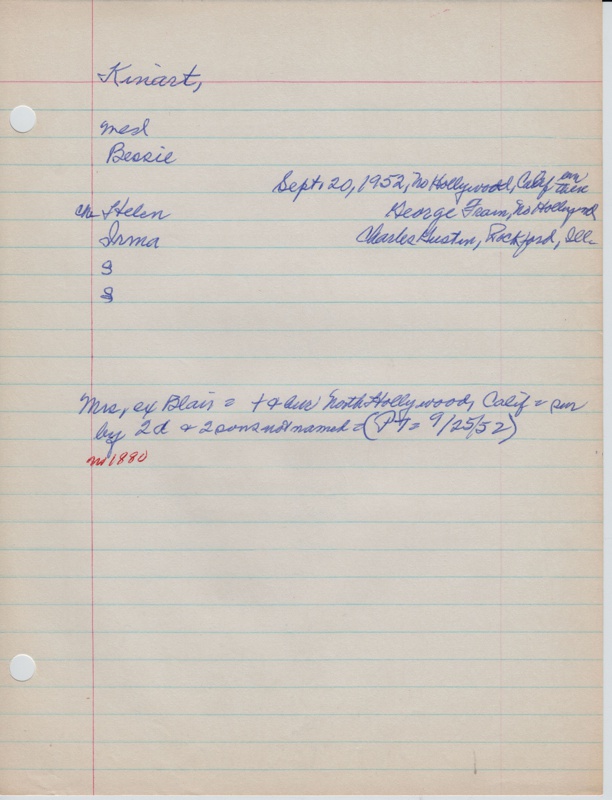 Kinart,
Med
Bessie
Sept. 20, 1952, No Hollywood, Calif
ch. Helen
George Fram, No Hollywood
Irma
Charles Gustin, Rockford, Ill.
S
S
Mrs, ex Blair = & bur North Hollywood, Calif = sur
by 2d & 2 sons not named = (PT = 9/25/52)
m 1880